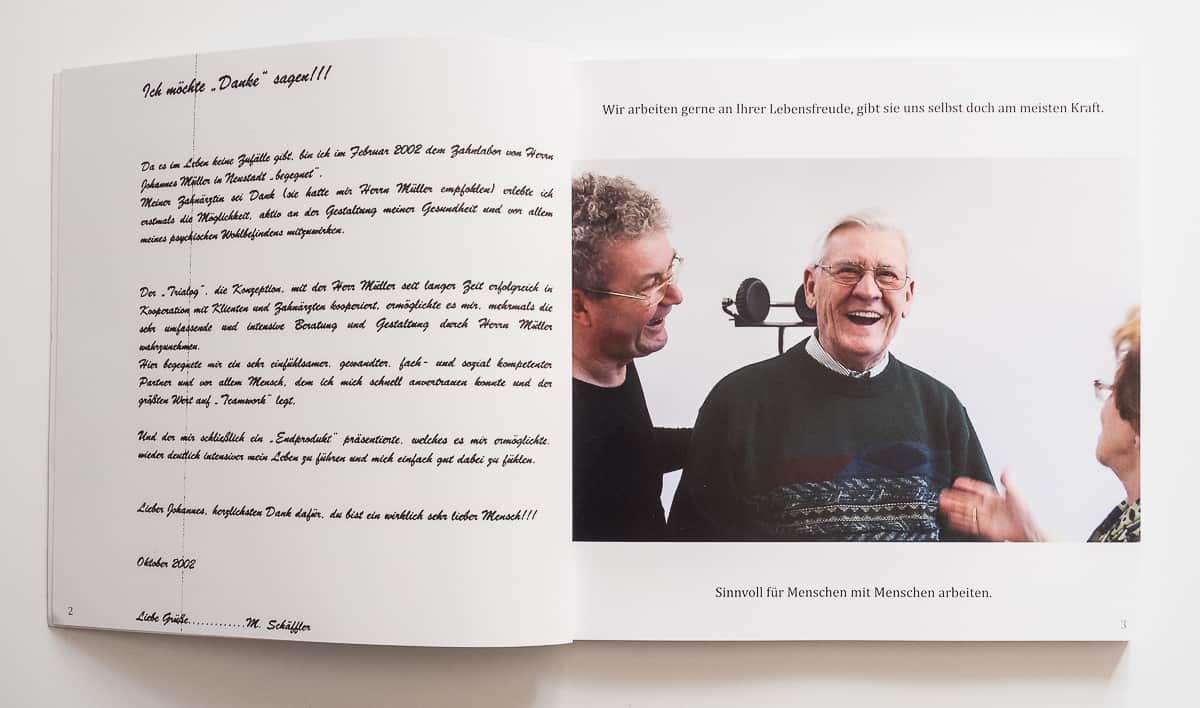 Ich möchte „Danke“ sagen!!!
Da es im Leben keine Zufälle gibt, bin ich im Februar 2002 dem Zahnlabor von Herrn
Johannes Müller in Neustadt „begegnet“.
Meiner Zahnärztin sei Dank (sie hatte mir Herrn Müller empfohlen) erlebte ich
erstmals die Möglichkeit, aktiv an der Gestaltung meiner Gesundheit und vor allem
meines psychischen Wohlbefindens mitzuwirken.
Der „Trialog“, die Konzeption, mit der Herr Müller seit langer Zeit erfolgreich in
Kooperation mit Klienten und Zahnärzten kooperiert, ermöglichte es mir, mehrmals die
sehr umfassende und intensive Beratung und Gestaltung durch Herrn Müller
wahrzunehmen.
Hier begegnete mir ein sehr einfühlsamer, gewandter, fach- und sozial kompetenter
Partner und vor allem Mensch, dem ich mich schnell anvertrauen konnte und der
größten Wert auf „Teamwork“ legt.
Und der mir schließlich ein „Endprodukt“ präsentierte, welches es mir ermöglichte,
wieder deutlich intensiver mein Leben zu führen und mich einfach gut dabei zu fühlen.
Lieber Johannes, herzlichsten Dank dafür, du bist ein wirklich sehr lieber Mensch!!!
Oktober 2002
Liebe Grüße.............M. Schäffler
2
Wir arbeiten gerne an Ihrer Lebensfreude, gibt sie uns selbst doch am meisten Kraft.
Sinnvoll für Menschen mit Menschen arbeiten.
3